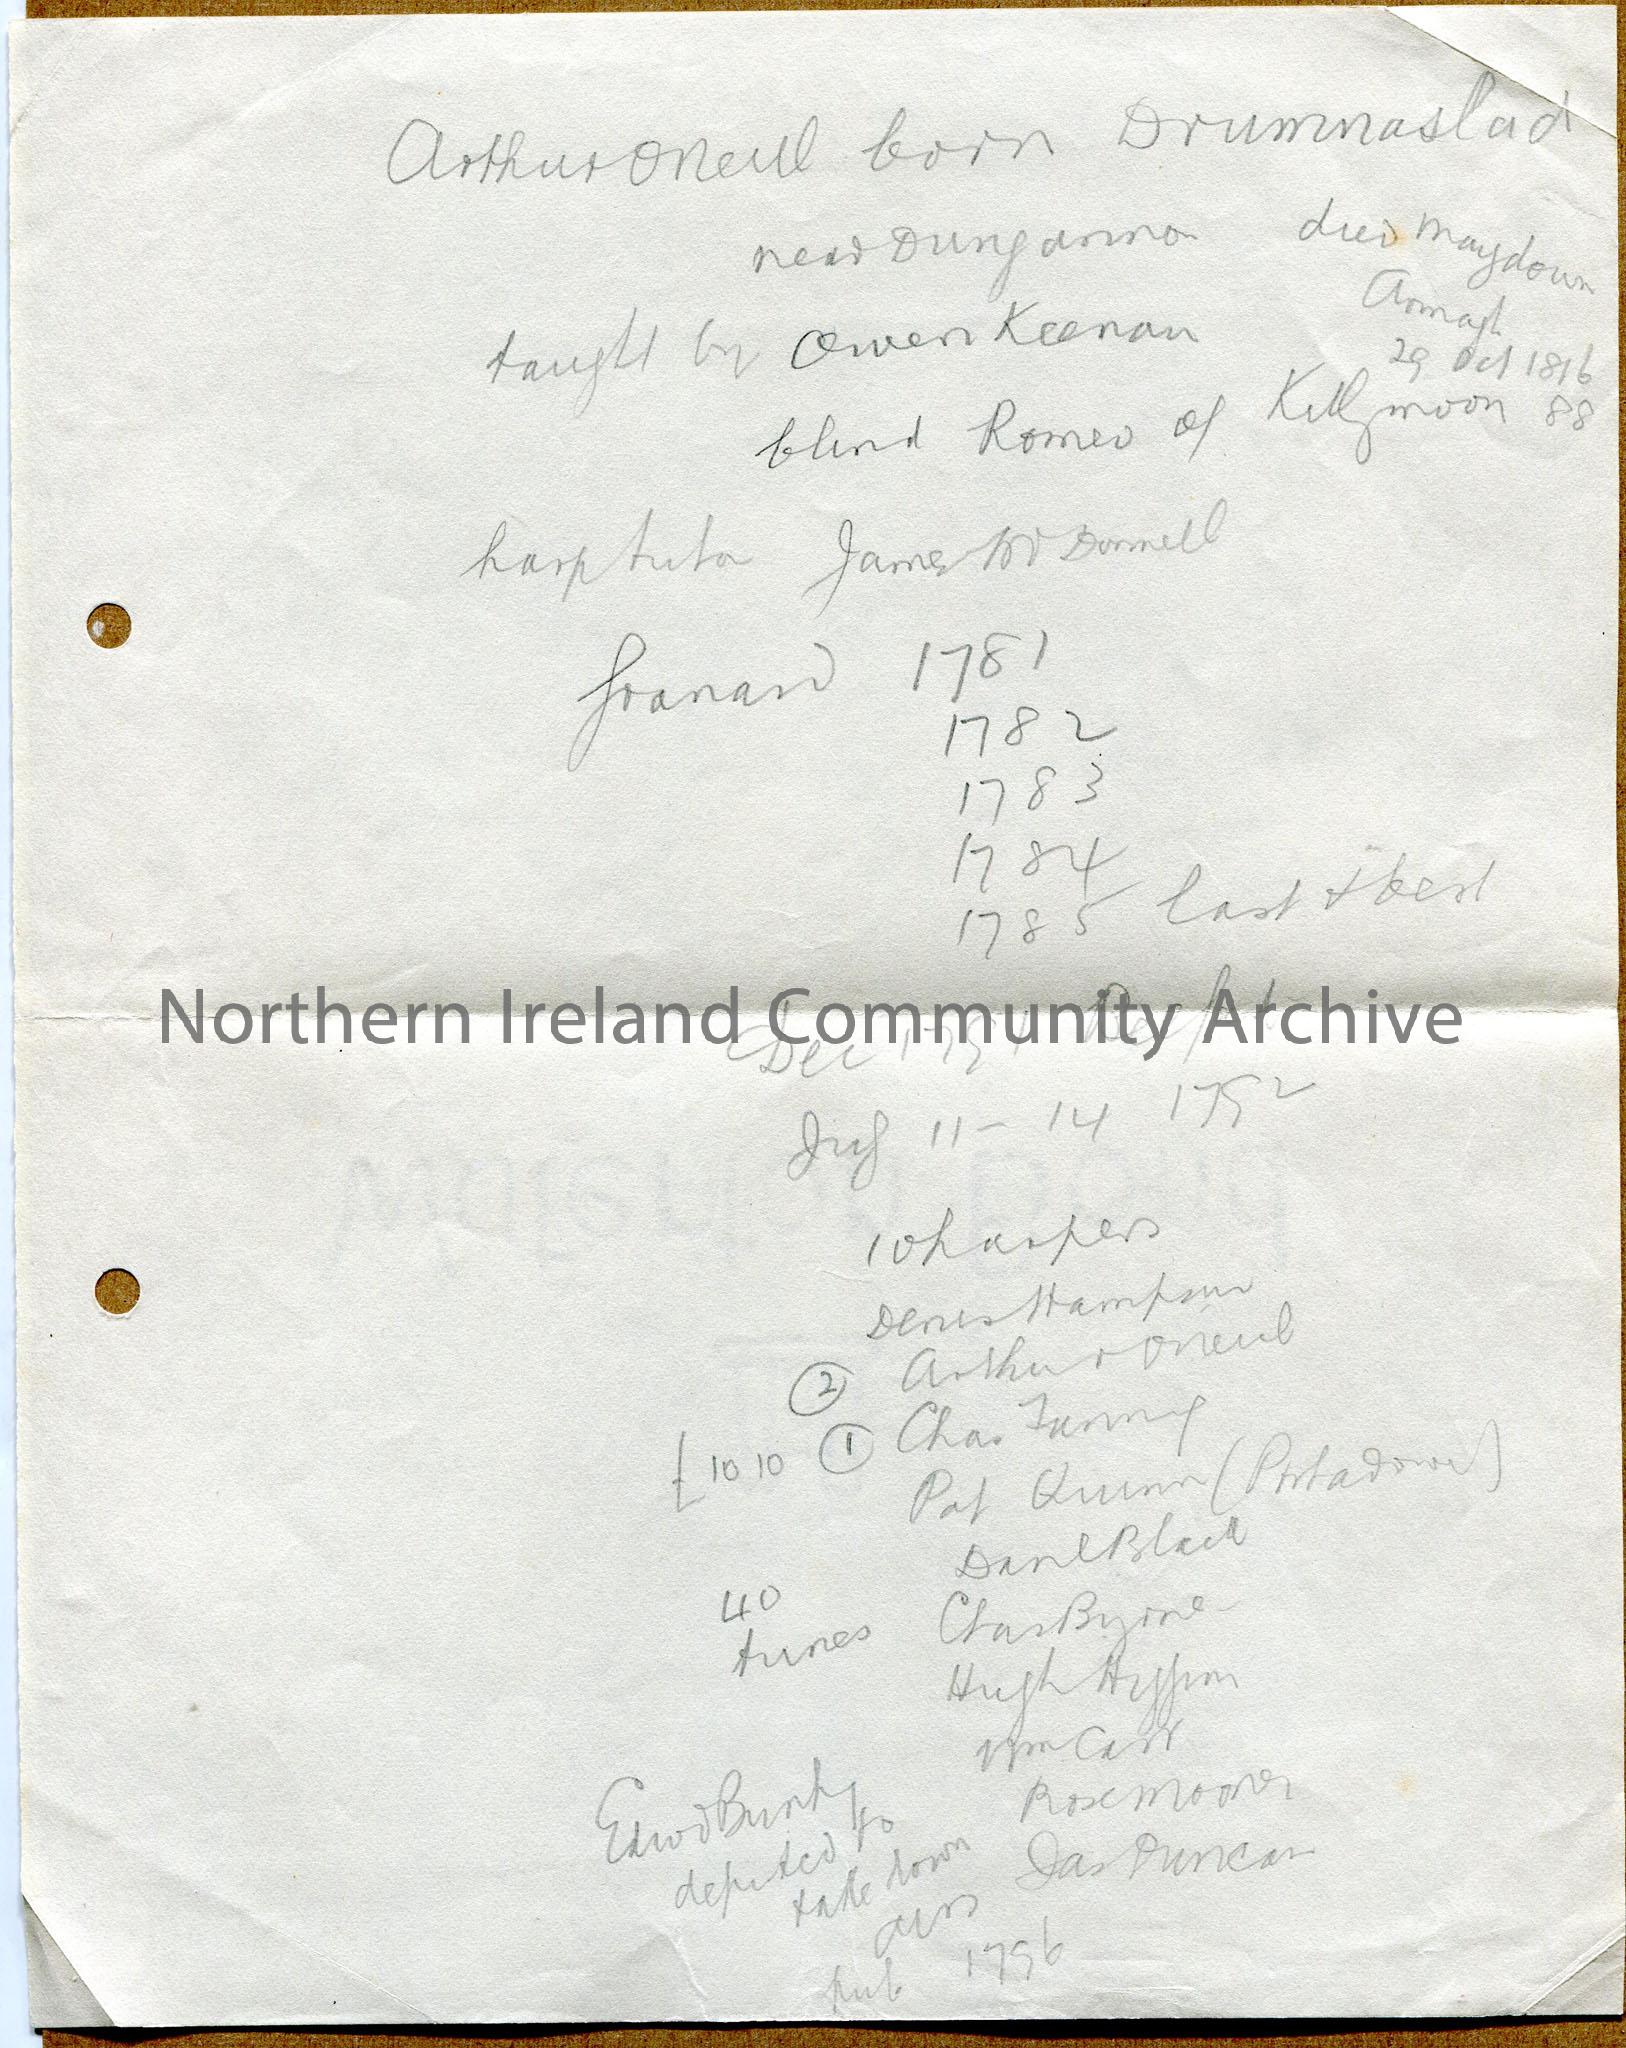 Arthur O Neill born Drumnaslad
near Dungannon died Maydown
Armagh
29 Oct 1816
88
taught by Owen Keenan
blind Romeo of Killymoon
harp tutor James McDonnell
Granard 1781
1782
1783
1784
1785 last & best
Northern Ireland Community Archive
Dec 1791 Belfast
July 11 - 14 1792
10 harpers
Denis Hampson
② Arthur O Neill
[10 10 ① Chas Fanning
Pat Quinn (Portadown)
Danl Black
40
tunes
Chas Byrne
Hugh Higgins
Wm Carr
Rose Mooney
Jas Duncan
Edwd Bunting
deputed to
take down
airs
pub 1796